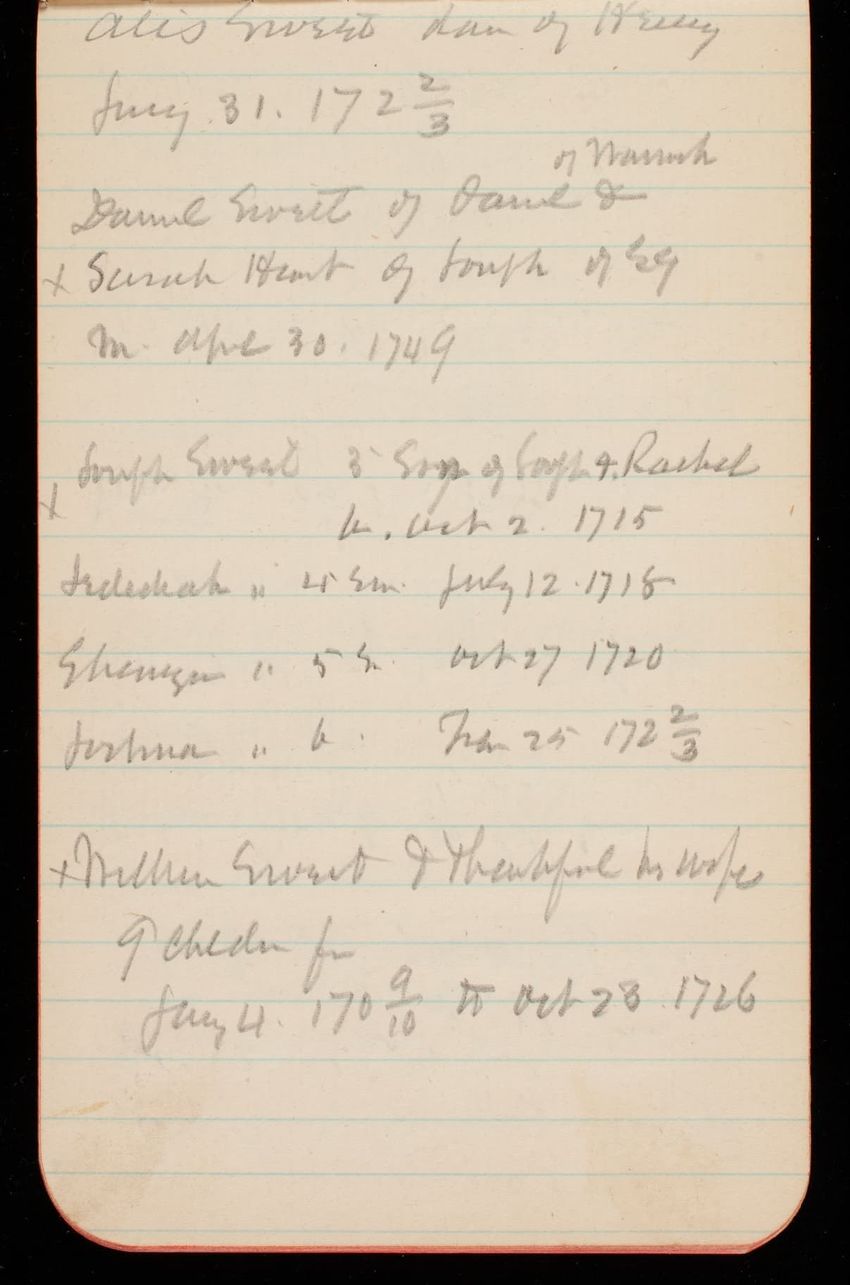 Alis Sweet dau of Henry
Jany 31. 172 2/3
of Warwick
Daniel Sweet of Daniel &
x Sarah Hunt of Joseph of EG
m. Apl 30. 1749
x Joseph Sweet 3 Son of Joseph & Rachel
b. Oct 2. 1715
Jedediah " 4 Son. July 12. 1718
Ebenezer " 5 S. Oct 27 1720
Joshua " 6. Jan 25 172 2/3
x William Sweet & Thankful his wife
9 Children fr
Jany 4. 170 9/10 to Oct 23 1726